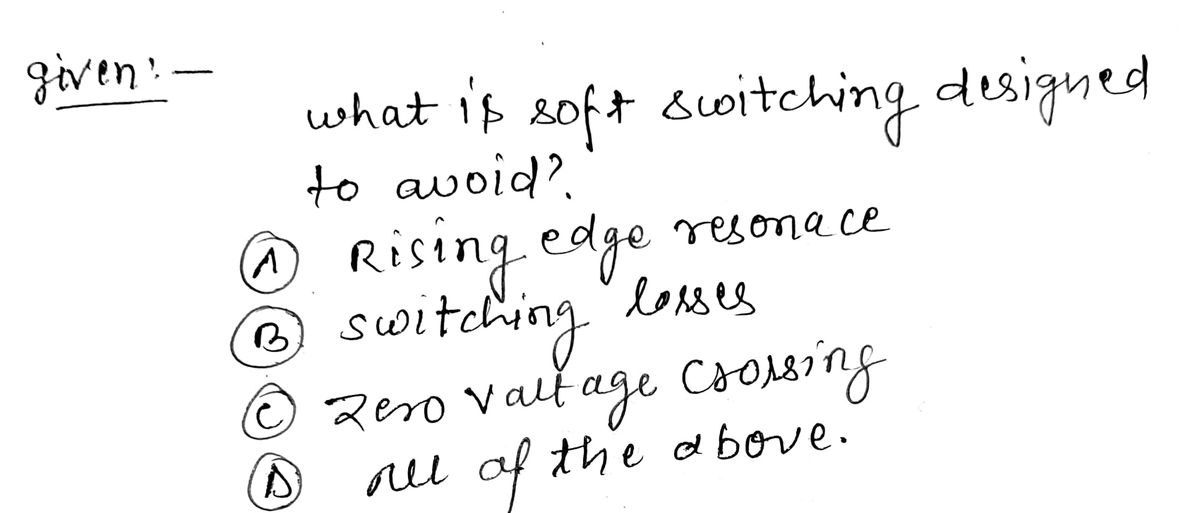 given:-
what is soft switching designed
to avoid?
(A) Rising edge resonace
(B) switching losses
(C) Zero valtage crossing
(D) all of the above.